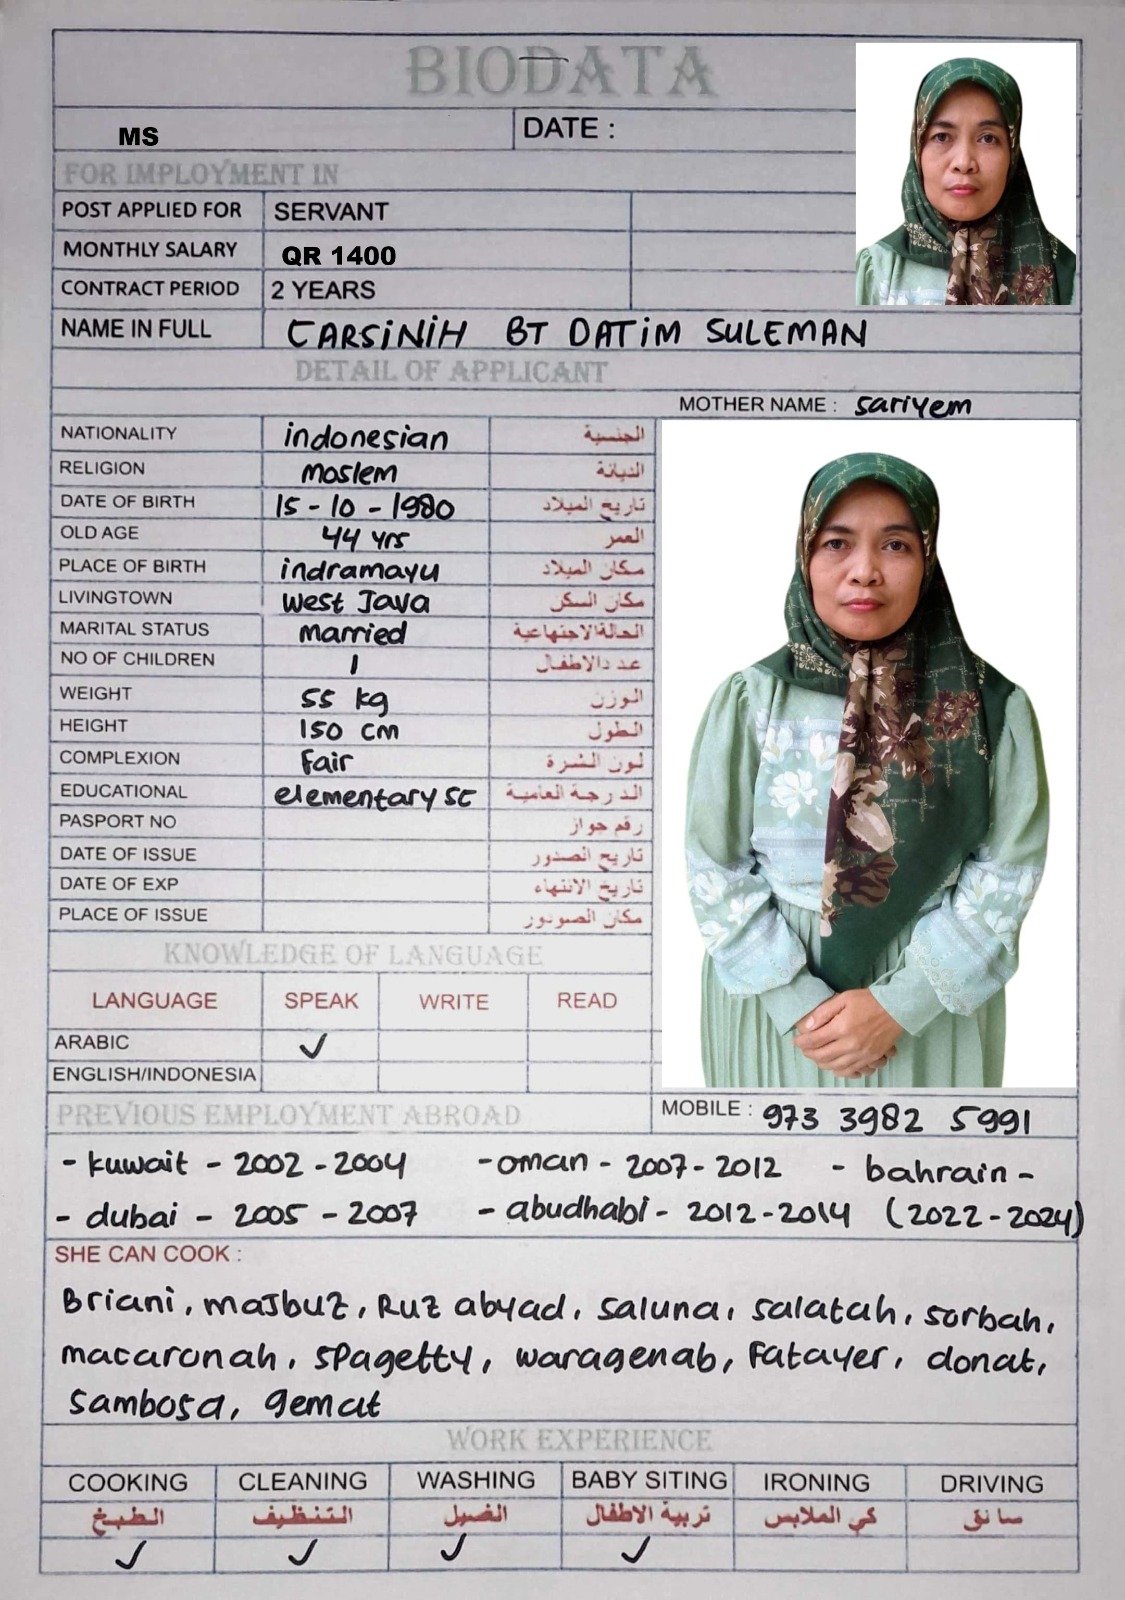 BIODATA
MS DATE :
FOR IMPLOYMENT IN
POST APPLIED FOR SERVANT
MONTHLY SALARY QR 1400
CONTRACT PERIOD 2 YEARS
NAME IN FULL CARSiNiH BT DATiM SULEMAN
DETAIL OF APPLICANT
MOTHER NAME : sariyem
NATIONALITY indonesian الجنسية
RELIGION moslem الديانة
DATE OF BIRTH 15 - 10 - 1980 تاريخ الميلاد
OLD AGE 44 yrs العمر
PLACE OF BIRTH indramayu مكان الميلاد
LIVINGTOWN West Java مكان السكن
MARITAL STATUS married الحالةالاجتهاعية
NO OF CHILDREN 1 عددالاطفال
WEIGHT 55 kg الوزن
HEIGHT 150 cm الطول
COMPLEXION Fair لون الشرة
EDUCATIONAL elementary sc الدرجة العامية
PASPORT NO رقم جواز
DATE OF ISSUE تاريح الصدور
DATE OF EXP تاريخ الانتهاء
PLACE OF ISSUE مكان الصودور
KNOWLEDGE OF LANGUAGE
LANGUAGE SPEAK WRITE READ
ARABIC ✓
ENGLISH/INDONESIA
PREVIOUS EMPLOYMENT ABROAD
MOBILE : 973 3982 5991
- kuwait - 2002 - 2004 - oman - 2007 - 2012 - bahrain -
- dubai - 2005 - 2007 - abudhabi - 2012 - 2014 (2022 - 2024)
SHE CAN COOK :
Briani, masbuz, Ruz abyad, saluna, salatah, sorbah,
macaronah, spagetty, waragenab, Fatayer, donat,
sambosa, gemat
WORK EXPERIENCE
COOKING CLEANING WASHING BABY SITING IRONING DRIVING
الطبخ التنظيف الغسيل تربية الاطفال كي الملابس سانق
✓ ✓ ✓ ✓